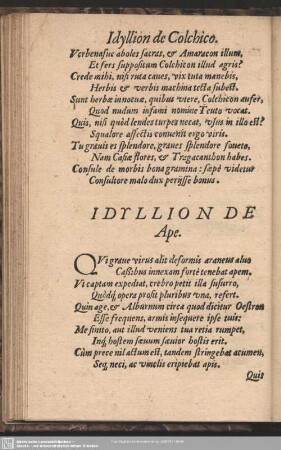 Idyllion de Colchico.
Verbenasue aboles sacras, & Amaracon illum,
Et fers suppositum Colchicon illud agris?
Crede mihi, nisi ruta caues, vix tuta manebis,
Herbis & verbis machina tecta subest.
Sunt herbæ innocuæ, quibus vtere, Colchicon aufer,
Quod nudum infami nomine Teuto vocat.
Quis, nisi quòd lendes turpes necat, vsus in illo est?
Squalore affectis conuenit ergo viris.
Tu grauis es splendore, graues splendore foueto,
Nam Casiæ flores, & Tragacanthon habes.
Consule de morbis bona gramina: sæpè videtur
Consultore malo dux perijsse bonus.
IDYLLION DE
Ape.
QVi graue virus alit deformis araneus aluo
Cassibus innexam fortè tenebat apem.
Vt captam expediat, crebro petit illa susurro,
Quòdq́; opera prosit pluribus vna, refert.
Quin age, & Alburnum circa quod dicitur Oestron
Esse frequens, armis insequere ipse tuis:
Me sinito, aut illud veniens tua retia rumpet,
Inq́; hostem sæuum sæuior hostis erit.
Cùm prece nil actum est, tandem stringebat acumen,
Seq; neci, ac vinclis eripiebat apis.
Quit